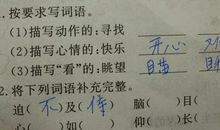 1.按要求写词语。
(1)描写动作的:寻找
(2)描写心情的:快乐 开心
(3)描写“看”的:眺望 瞄
2.将下列词语补充完整。
迫(不)及(待) 脑( )目(
心( )如( ) 仰( )长(